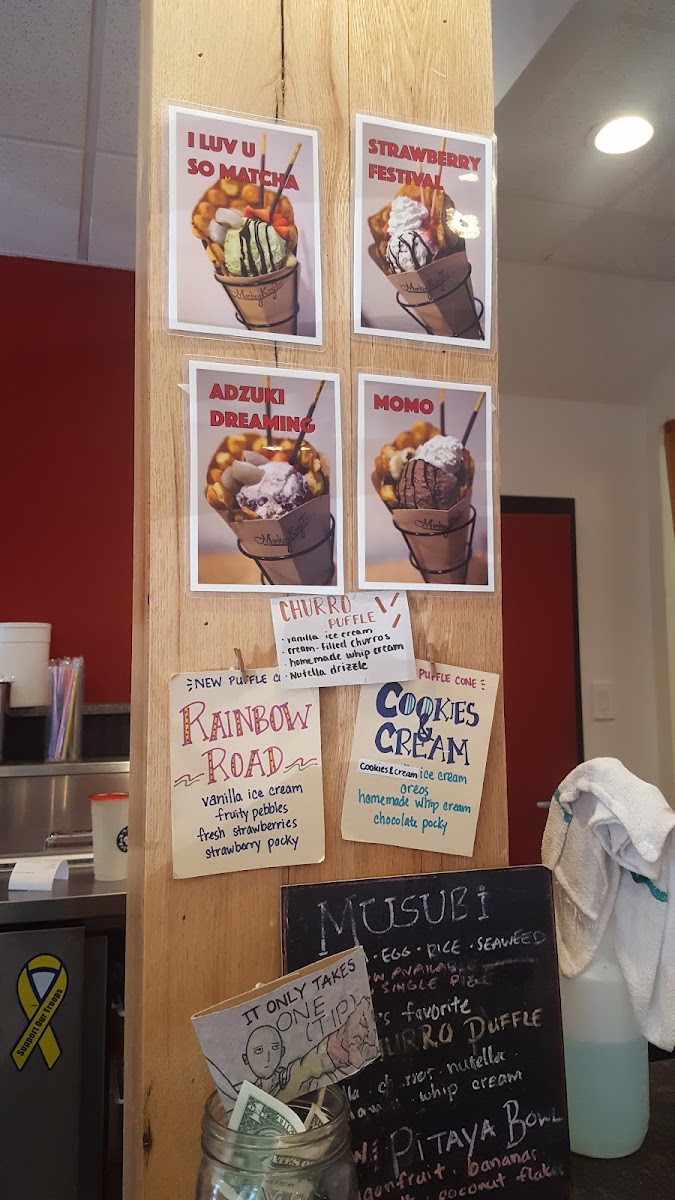 I LUV U
SO MATCHA
STRAWBERRY
FESTIVAL
ADZUKI
DREAMING
MOMO
CHURRO
PUFFLE
• vanilla ice cream
• cream-filled churros
• homemade whip cream
• Nutella drizzle
NEW PUFFLE
RAINBOW
ROAD
vanilla ice cream
fruity pebbles
fresh strawberries
strawberry pocky
PUFFLE CONE
COOKIES
&
CREAM
Cookies & Cream ice cream
oreos
homemade whip cream
chocolate pocky
MUSUBi
• EGG • RICE • SEAWEED
AVAILABLE
SINGLE
favorite
CHURRO PUFFLE
nutella
whip cream
PITAYA BOWL
bananas
coconut flakes
IT ONLY TAKES
ONE
(TIP)
Support Our Troops